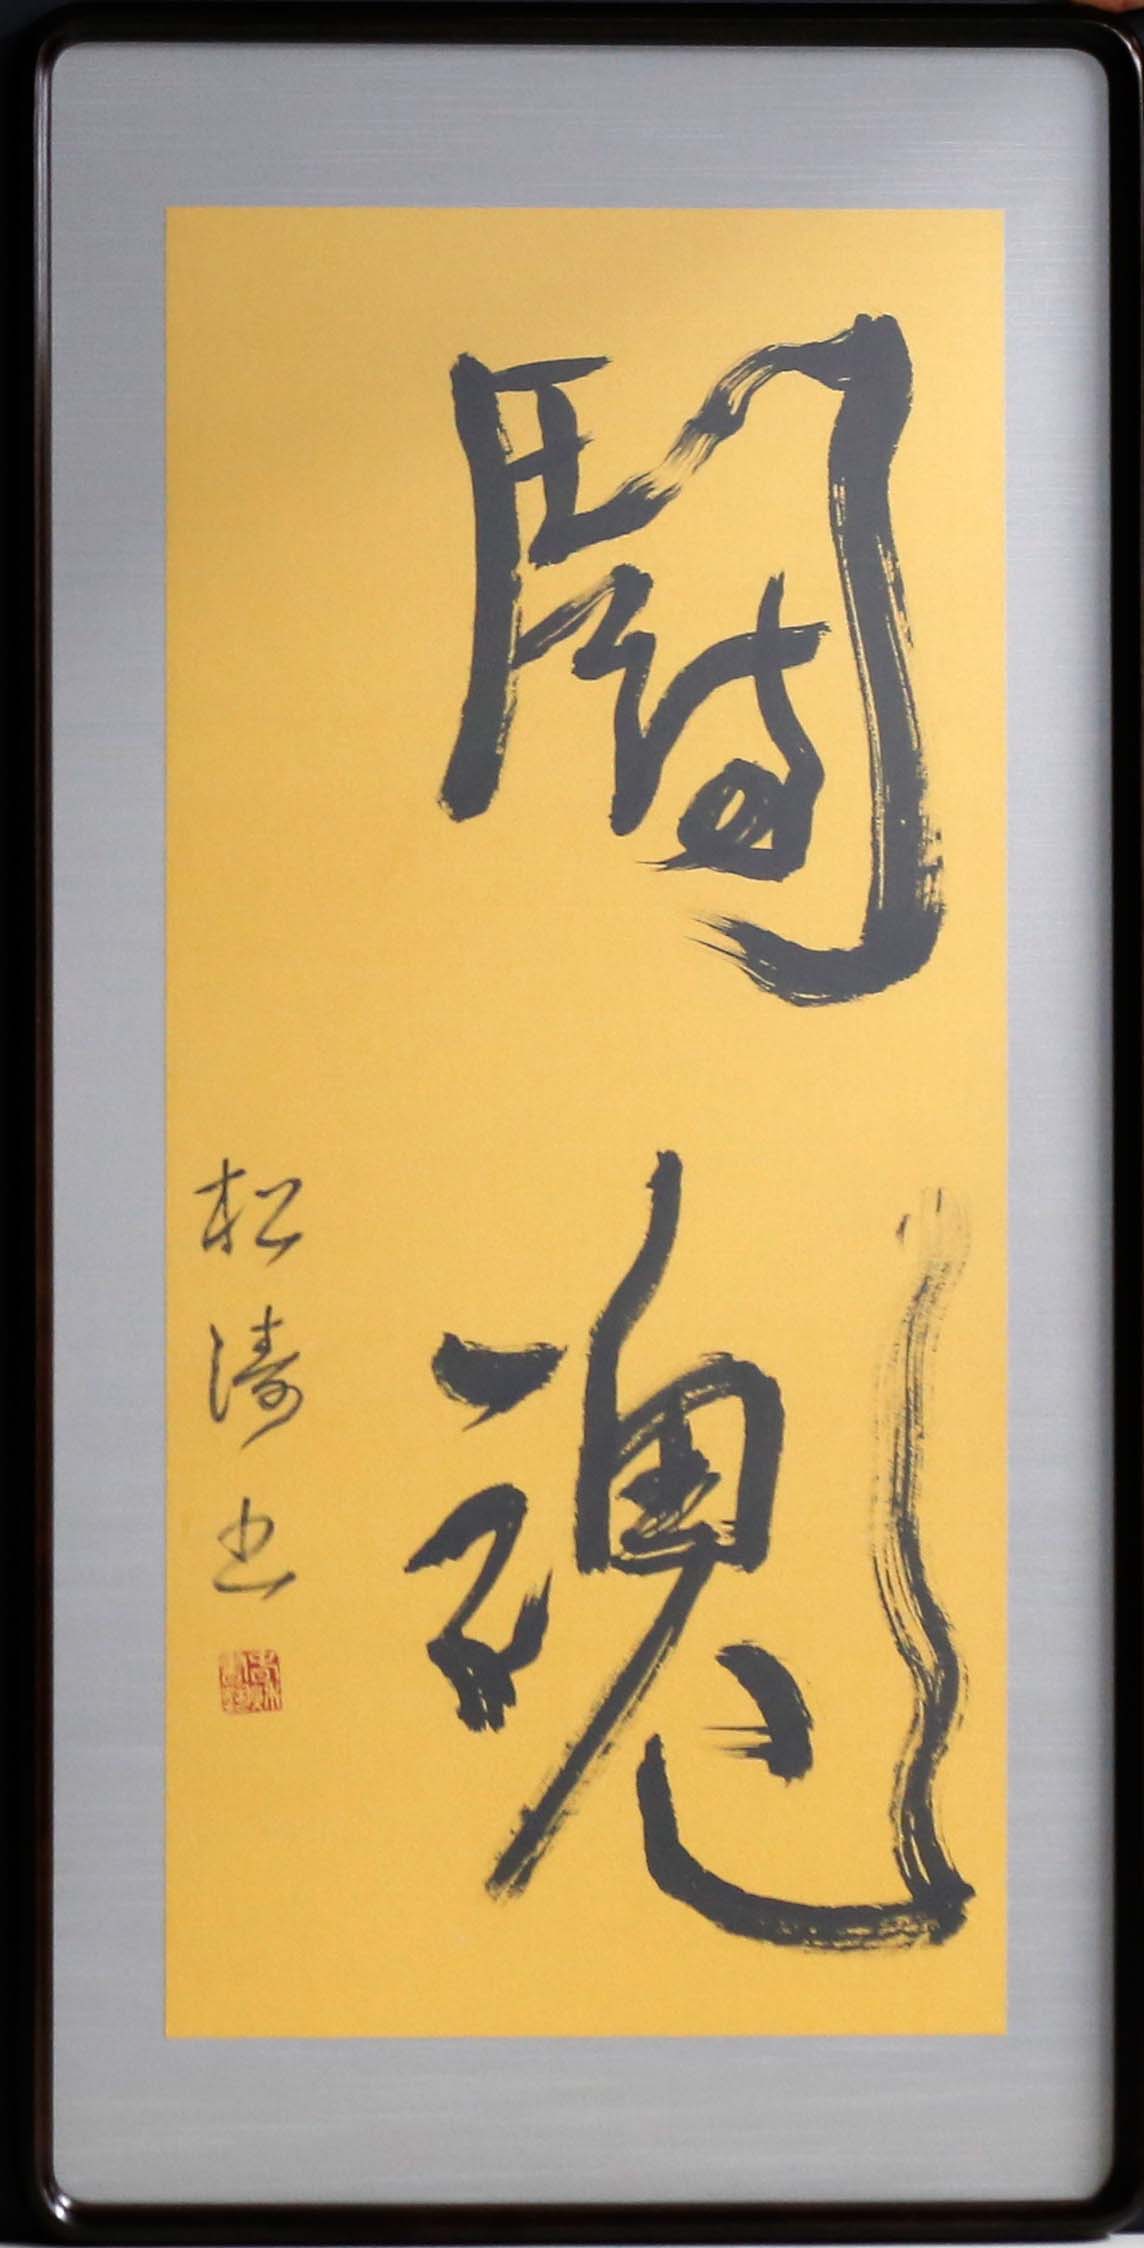 闘魂
松濤書